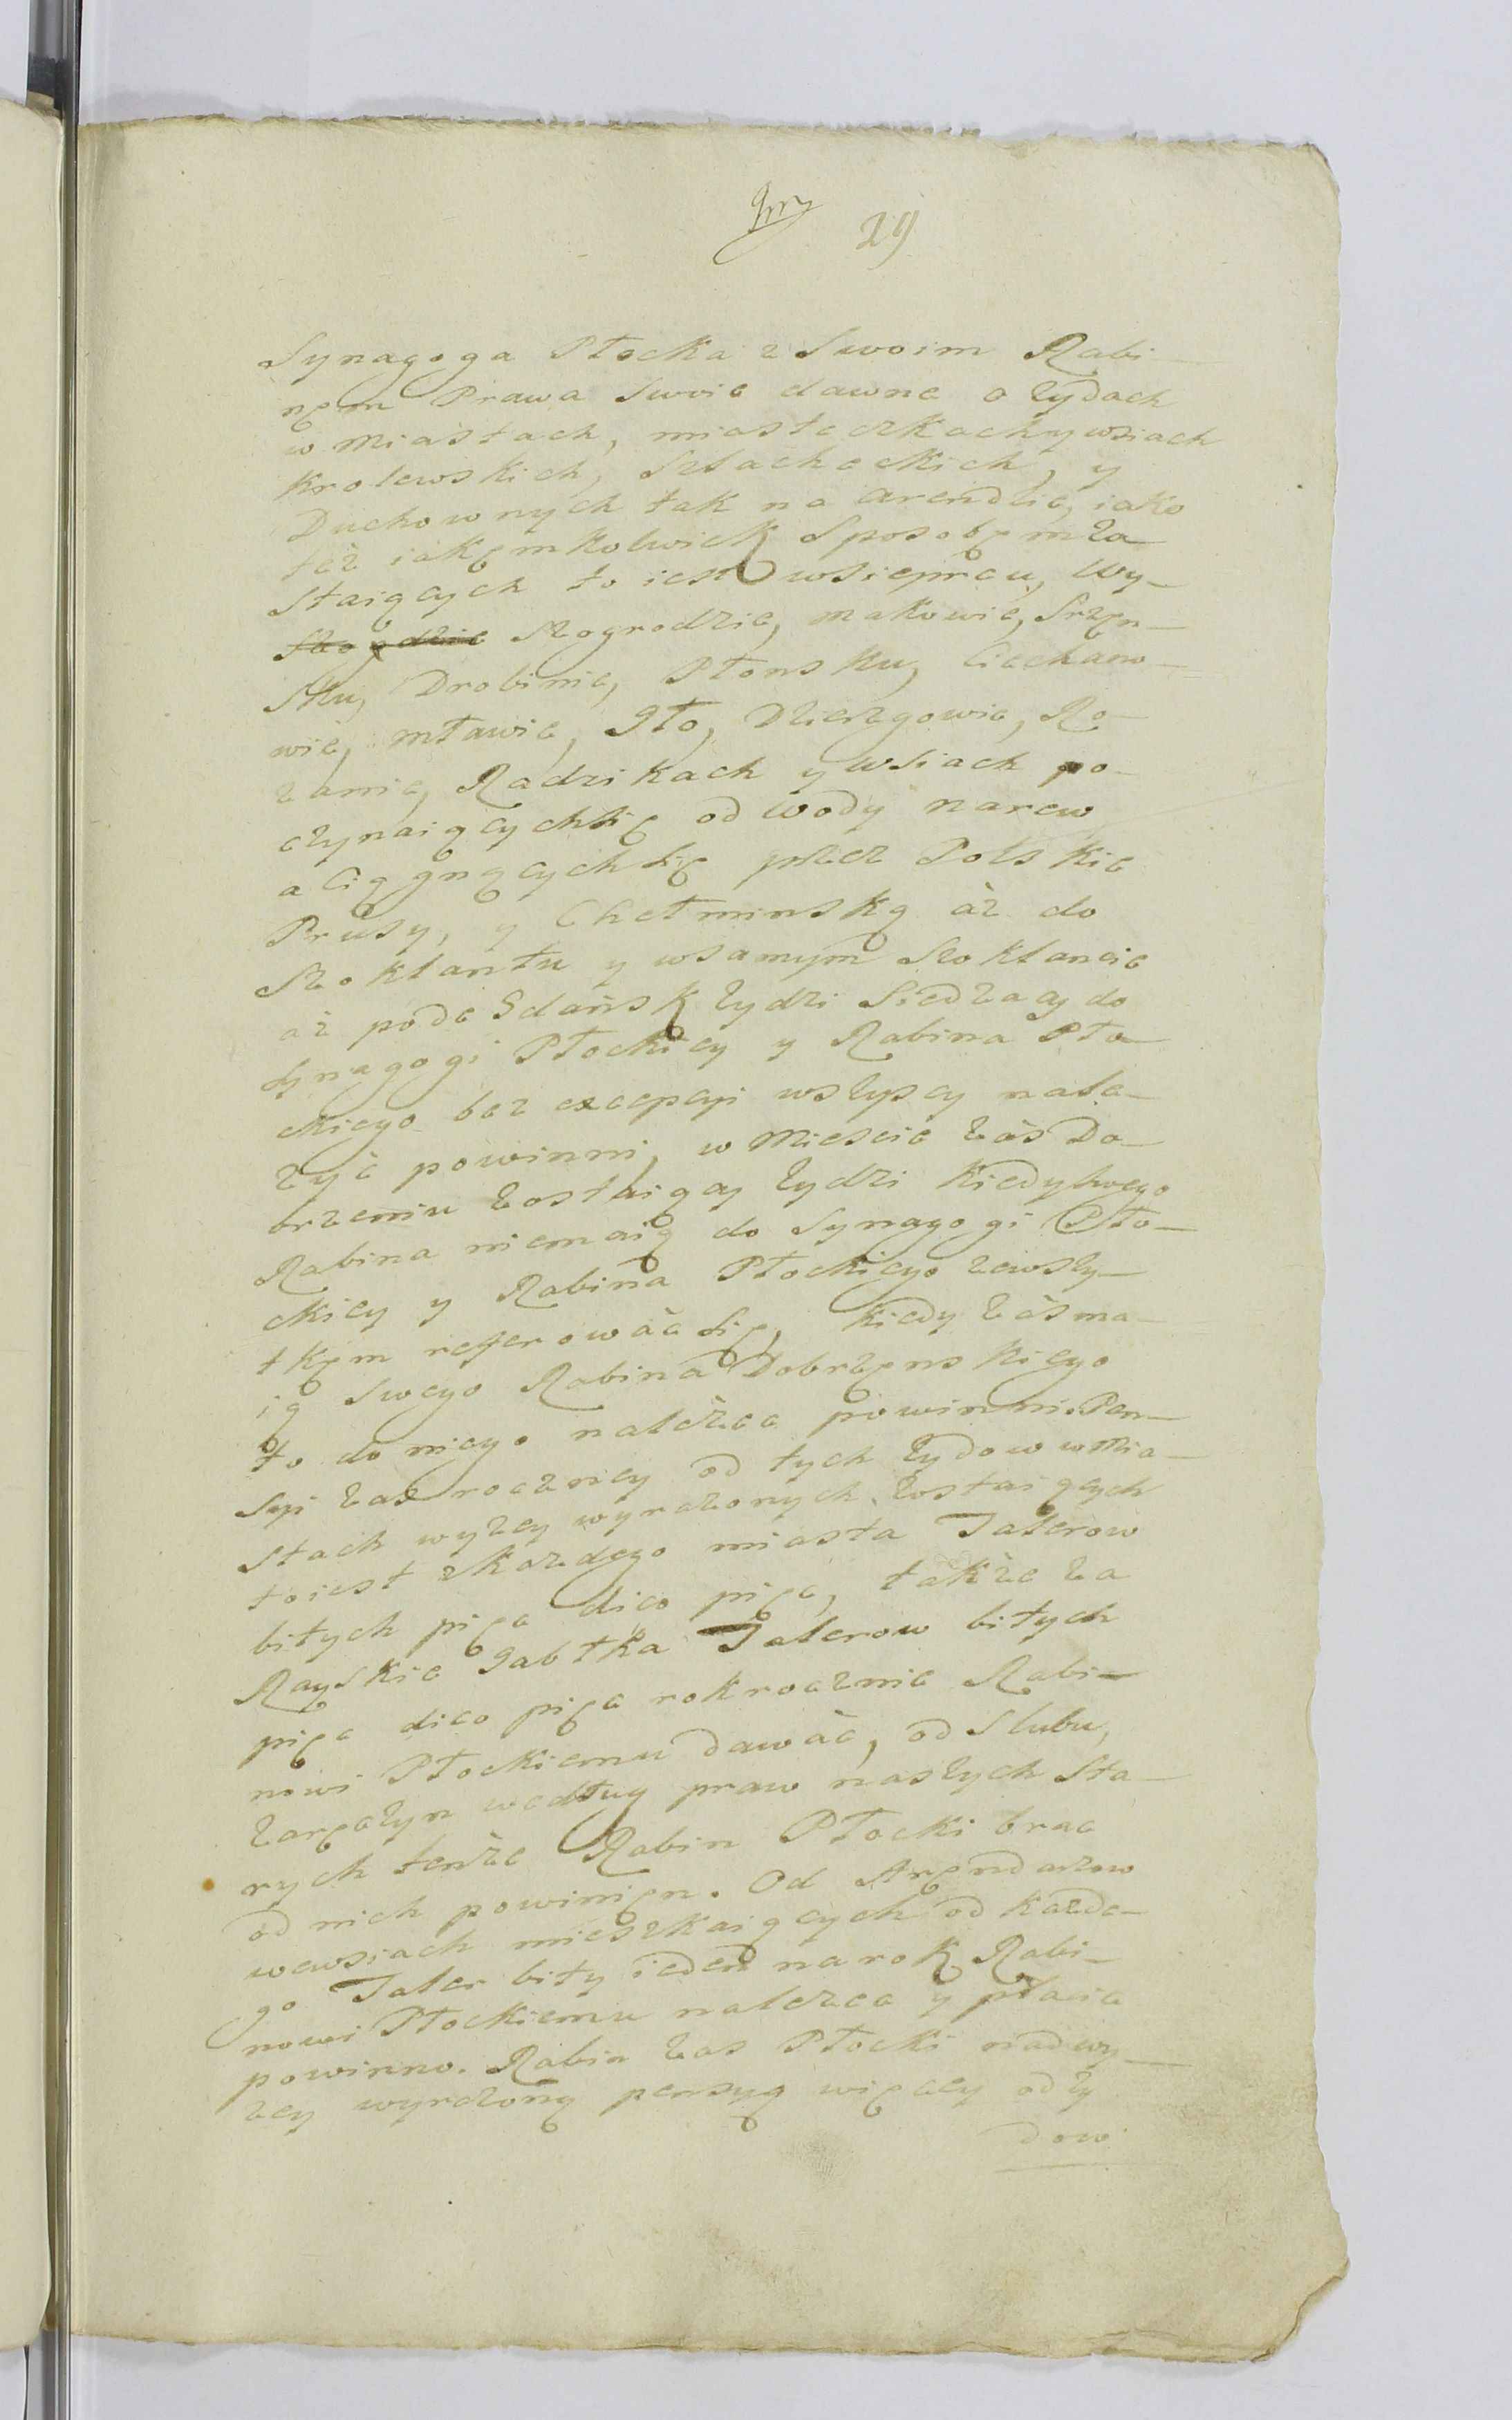 29
Synagoga Płocka z Swoim Rabi-
nęm Prawa Swoie dawne o Zydach
w Miastach, miasteczkach y wsiach
Krolewskich, Szlacheckich, y
Duchownych tak na arendzie, iako
też iakęmkolwiek Sposobęm Zo
staiących to iest w Siepreu, Wy-
Szogrodzie, Makowie, Srzen-
Sku, Drobinie, Płonsku, Ciechano-
wie, Mławie, Iło, Dzierzgowie, Ro-
zanie, Radzikach y wsiach po-
czynaiących się od Wody Narew
a Ciągnących się przez Polskie
Prusy, y Chełminską aż do
Szotlantu y w samym Szotlancie
aż pode Gdańsk Zydzi Siedzacy do
Synagogi Płockiey y Rabina Pło-
ckiego bez excepcyi wszyscy nale-
żyć powinni, w Miescie Zaś Do-
brzeniu Zostaiący Zydzi kiedy Swego
Rabina niemaią do Synagogi Pło-
ckiey y Rabina Płockiego zewszy-
tkęm referować się, kiedy Zaś ma-
ią Swego Rabina Dobrzęnskiego
to do niego należec powinni. Pen-
syi Zas roczney od tych Zydow w Mia-
stach wyzey wyrazonych Zostaiących
to iest z kazdego miasta Talerow
bitych pięc dico pięc, także Za
Rayskie Jabłka Talerow bitych
pięc dico pięc rokrocznie Rabi-
nowi Płockiemu dawać, od Slubu,
Zaręczyn według praw naszych Sta-
rych tenże Rabin Płocki brac
od nich powinięn. Od Aręndarzow
we wsiach mieszkaiących od kazde-
go Taler bity ieden na rok Rabi-
nowi Płockiemu nalezec y płacic
powinno. Rabin Zas Płocki nad wy-
zey wyrazoną pensyą więcey od Zy
dow